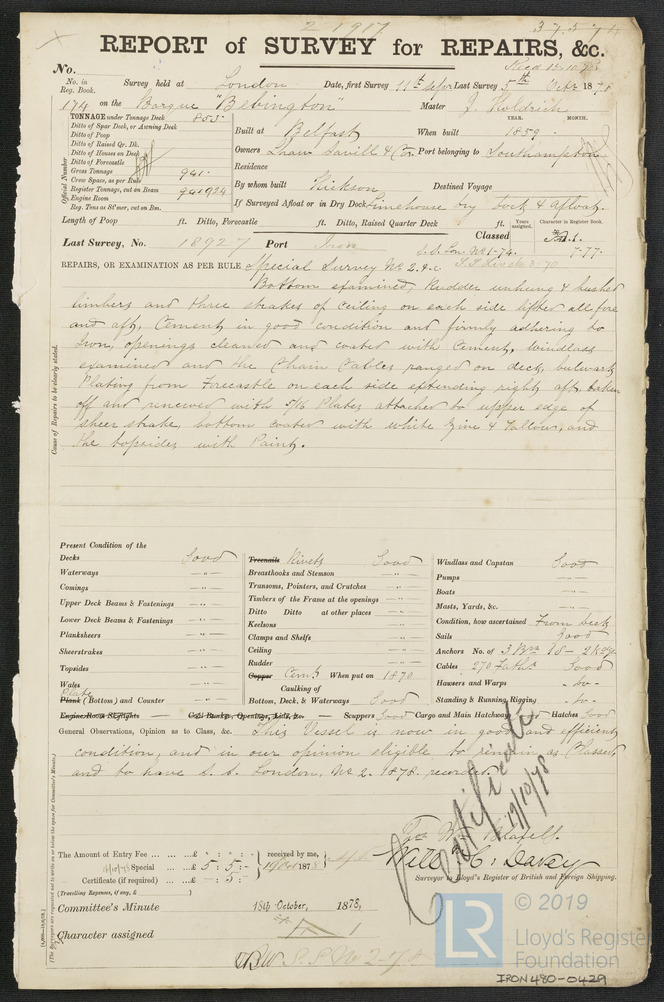 2 1917
37574
REPORT of SURVEY for REPAIRS, &c.
No.
No. in Reg. Book.
Survey held at London Date, first Survey 11th Last Survey 5th Octr 1878
174 on the Barque "Bebington" Master J. Holdrich
TONNAGE under Tonnage Deck 855
Ditto of Spar Deck, or Awning Deck
Ditto of Poop
Ditto of Raised Qr. Dk.
Ditto of Houses on Deck
Ditto of Forecastle
Gross Tonnage 941
Crew Space, as per Rule
Register Tonnage, cut on Beam 941 924
Engine Room
Reg. Tons as St'mer, cut on Bm.
Official Number
YEAR. MONTH.
Built at Belfast When built 1859
Owners Shaw Savill & Co. Port belonging to Southampton
Residence
By whom built Hickson Destined Voyage
If Surveyed Afloat or in Dry Dock Limehouse Dry Dock & afloat.
Length of Poop ft. Ditto, Forecastle ft. Ditto, Raised Quarter Deck ft.
Years assigned. Character in Register Book.
Last Survey, No. 18927 Port Iron Classed A.1.
S.S. Lon. No 1-74. 7-77.
REPAIRS, OR EXAMINATION AS PER RULE Special Survey No 2. & c.
Bottom examined, Rudder unhung & bushed
limbers and three strakes of ceiling on each side lifted all fore
and aft, Cement in good condition and firmly adhering to
Iron, openings cleaned and coated with Cement, windlass
examined and the Chain Cables ranged on deck, bulwark
Plating from Forecastle on each side extending right aft, taken
off and renewed with 5/16 Plates attached to upper edge of
sheer strake, bottom coated with white Zinc & Tallow, and
the topsides with Paint.
Cause of Repairs to be clearly stated.
Present Condition of the
Decks Good
Waterways — " —
Comings — " —
Upper Deck Beams & Fastenings — " —
Lower Deck Beams & Fastenings — " —
Planksheers — " —
Sheerstrakes — " —
Topsides — " —
Wales — " —
Plate
Plank (Bottom) and Counter — " —
Engine Room Skylights — Coal Bunker, Openings, Lids, &c. — Scuppers Good Cargo and Main Hatchways Hatches Good
Treenails Rivets Good
Breasthooks and Stemson — " —
Transoms, Pointers, and Crutches — " —
Timbers of the Frame at the openings — " —
Ditto Ditto at other places — " —
Keelsons — " —
Clamps and Shelfs — " —
Ceiling — " —
Rudder — " —
Copper Cemt When put on 1870
Caulking of
Bottom, Deck, & Waterways Good
Windlass and Capstan Good
Pumps — " —
Boats — " —
Masts, Yards, &c. — " —
Condition, how ascertained From deck
Sails Good
Anchors No. of 3 Bwr 1S - 2 Kdg.
Cables 270 Faths Good
Hawsers and Warps - Do -
Standing & Running Rigging - Do -
General Observations, Opinion as to Class, &c. This Vessel is now in good and efficient
condition, and in our opinion eligible to remain as Classed
and to have S.S. London, No 2. 1878. recorded
Certificate
19/10/78
The Amount of Entry Fee ... ... ... £ : : received by me,
Special ... ... £ 5 : 5 : 187
Certificate (if required) ... ... £ : 5 :
(Travelling Expenses, if any, £ )
Will. C. Davey
Surveyor to Lloyd's Register of British and Foreign Shipping.
Committee's Minute 15th October, 1878,
Character assigned A 1
S.S. No 2-78
© 2019
LR
Lloyd's Register
Foundation
IRON480-0429